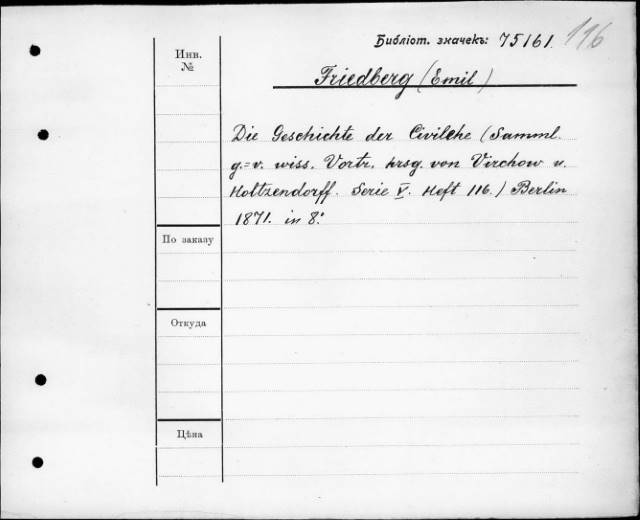 Библіот. значекъ: 75161. 116
Инв.
№
Friedberg (Emil)
Die Geschichte der Civilehe (Samml.
g.=v. wiss. Vortr. hrsg. von Virchow u.
Holtzendorff. Serie V. Heft 116.) Berlin
1871. in 8.°
По заказу
Откуда
Цѣна